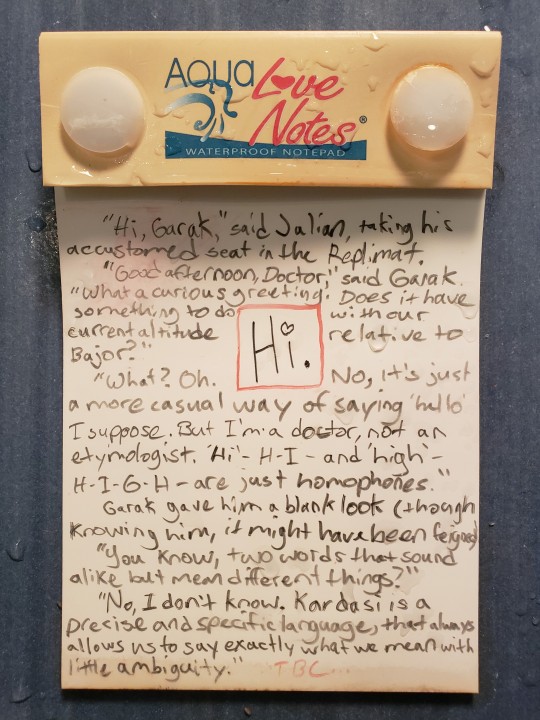 AQUA Love
Notes®
WATERPROOF NOTEPAD
"Hi, Garak," said Julian, taking his
accustomed seat in the Replimat.
"Good afternoon, Doctor," said Garak.
"What a curious greeting. Does it have
something to do with our
current altitude relative to
Bajor?"
Hi.
"What? Oh. No, it's just
a more casual way of saying 'hello'
I suppose. But I'm a doctor, not an
etymologist. 'Hi' - H-I - and 'high' -
H-I-G-H - are just homophones."
Garak gave him a blank look (though
knowing him, it might have been feigned)
"You know, two words that sound
alike but mean different things?"
"No, I don't know. Kardasi is a
precise and specific language, that always
allows us to say exactly what we mean with
little ambiguity." TBC...